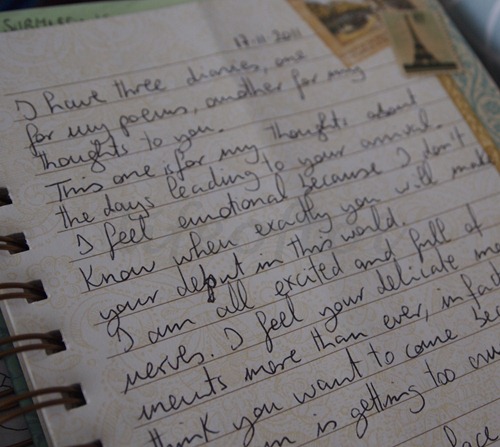 17.11.2011
I have three diaries, one
for my poems, another for my
thoughts to you.
This one is for my thoughts about
the days leading to your arrival.
I feel emotional because I don't
know when exactly you will make
your debut in this world.
I am all excited and full of
nerves. I feel your delicate mo
ments more than ever, in fact
think you want to come bec
is getting too